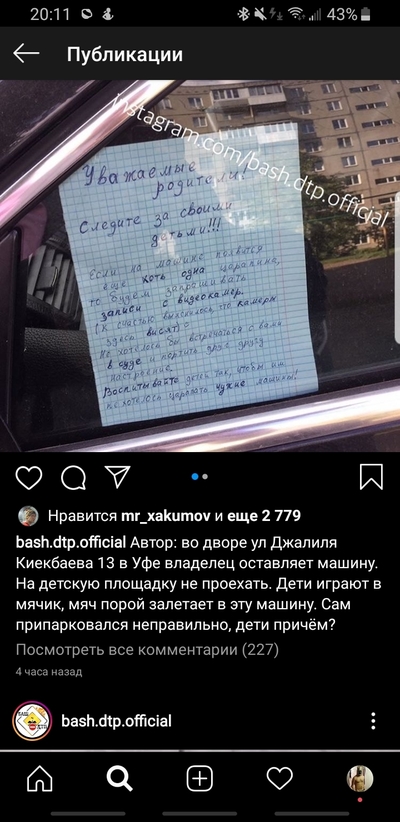 20:11
43%
Публикации
instagram.com/bash.dtp.official
Уважаемые
родители!
Следите за своими
детьми!!!
Если на машине появится
еще хоть одна царапина,
то будем запрашивать
записи с видеокамер.
(К счастью выяснилось, что камеры
здесь висят)
Не хотелось бы встречаться с вами
в суде и портить друг другу
настроение.
Воспитывайте детей так, чтобы им
не хотелось царапать чужие машины!
Нравится mr_xakumov и еще 2 779
bash.dtp.official Автор: во дворе ул Джалиля
Киекбаева 13 в Уфе владелец оставляет машину.
На детскую площадку не проехать. Дети играют в
мячик, мяч порой залетает в эту машину. Сам
припарковался неправильно, дети причём?
Посмотреть все комментарии (227)
4 часа назад
bash.dtp.official